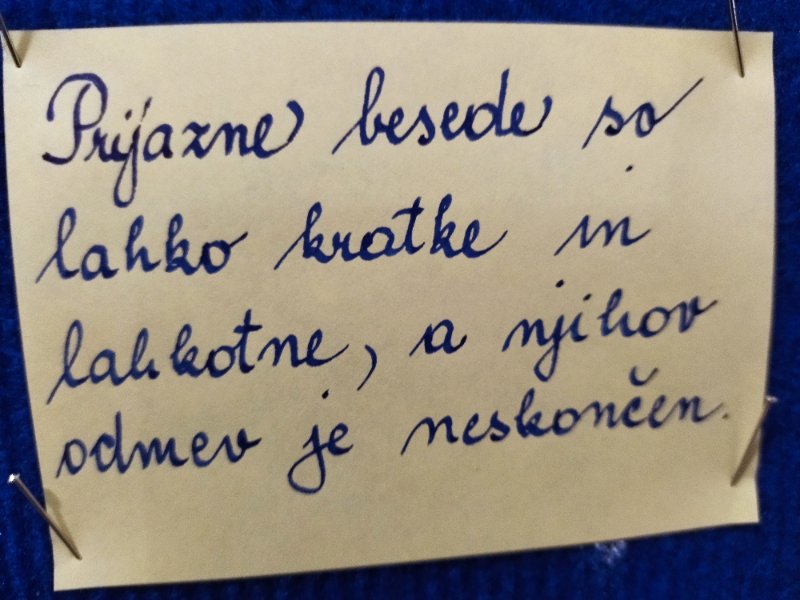 Prijazne besede so
lahko kratke in
lahkotne, a njihov
odmev je neskončen.